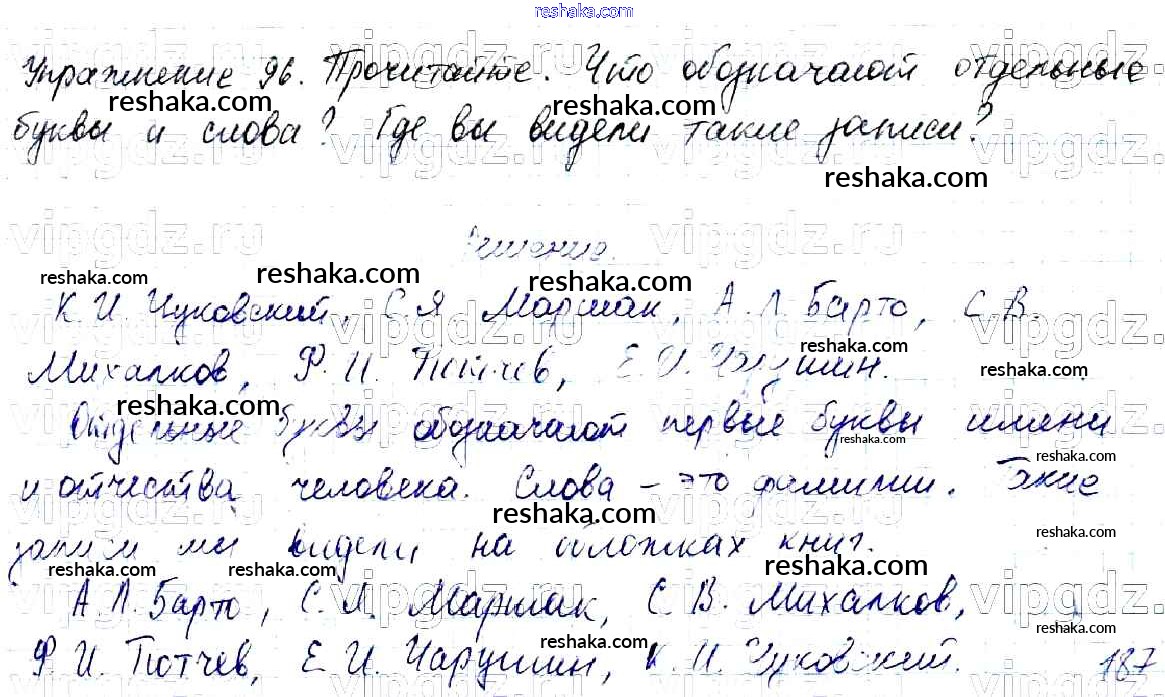 reshaka.com
Упражнение 96. Прочитайте. Что обозначают отдельные
буквы и слова? Где вы видели такие записи?
Решение.
К. И. Чуковский, С. Я. Маршак, А. Л. Барто, С. В.
Михалков, Ф. И. Тютчев, Е. И. Чарушин.
Отдельные буквы обозначают первые буквы имени
и отчества человека. Слова – это фамилии. Такие
записи мы видели на обложках книг.
А. Л. Барто, С. Я. Маршак, С. В. Михалков,
Ф. И. Тютчев, Е. И. Чарушин, К. И. Чуковский.
187